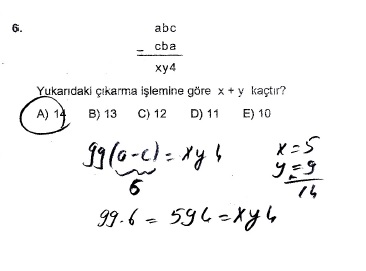 6.
abc
− cba
xy4
Yukarıdaki çıkarma işlemine göre x + y kaçtır?
A) 14 B) 13 C) 12 D) 11 E) 10
99(a-c) = xy4
6
99.6 = 594 = xy4
x = 5
y = 9
14